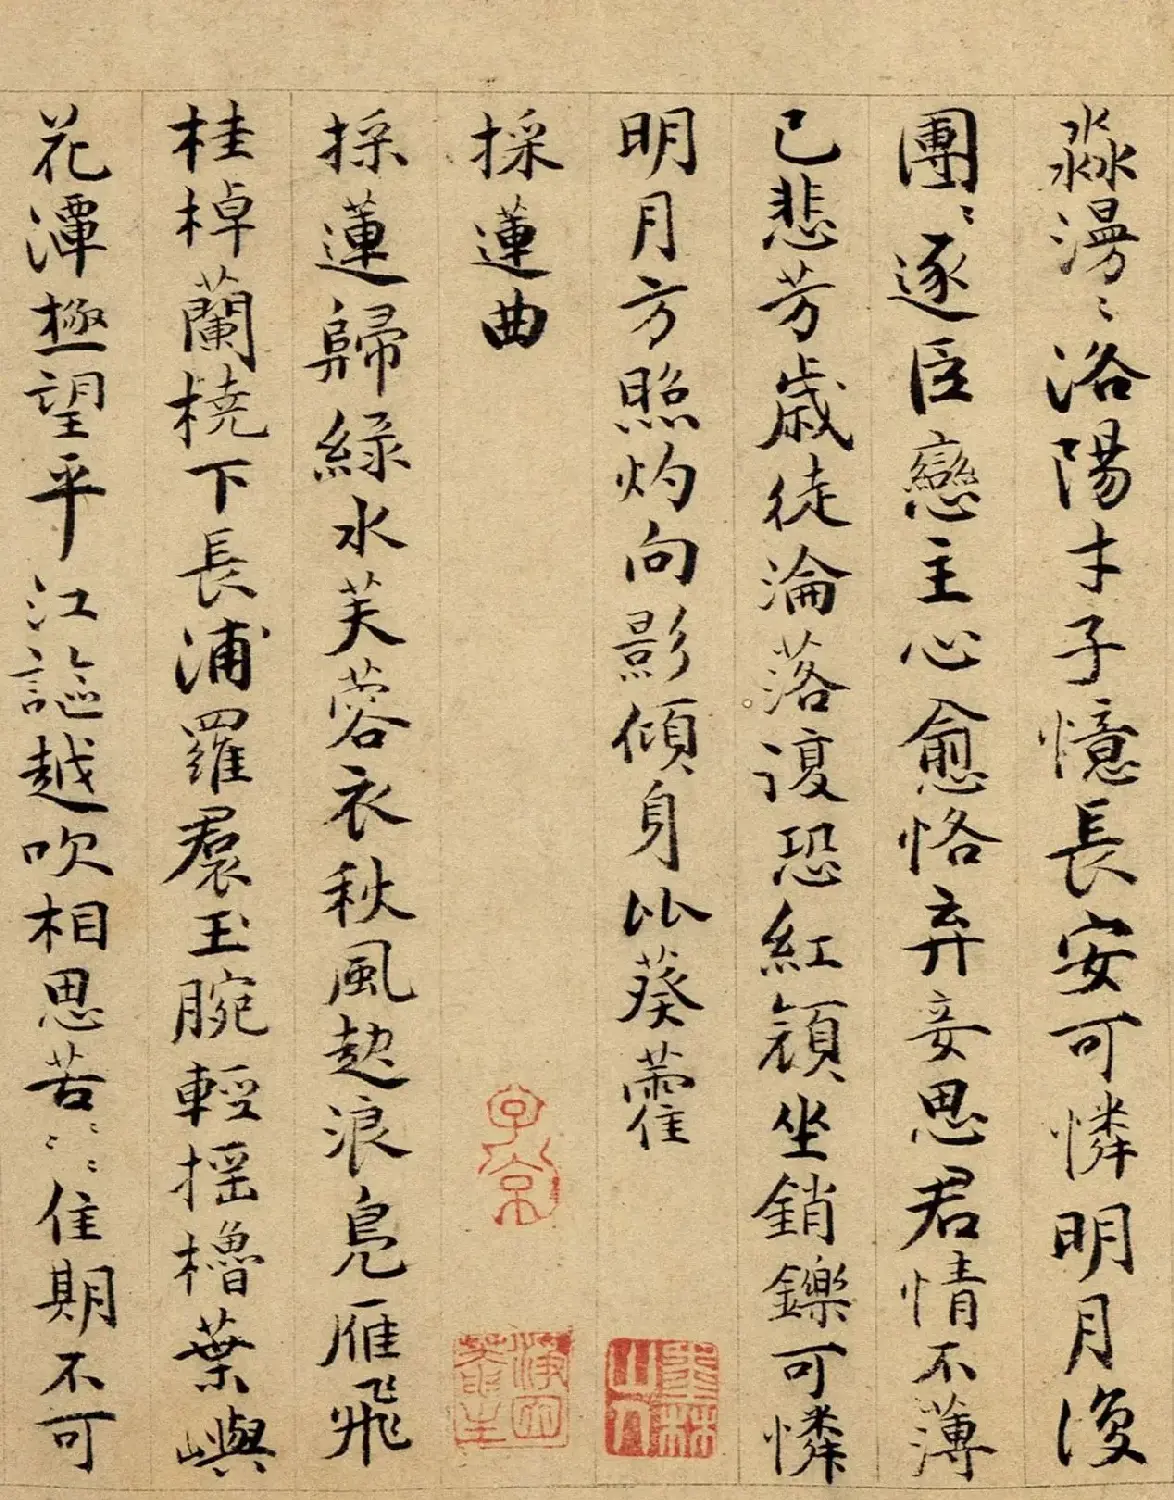 淼漫〻洛陽才子憶長安可憐明月復
團〻逐臣戀主心愈恪弃妾思君情不薄
已悲芳歳徒淪落復恐紅顔坐銷鑠可憐
明月方照灼向影傾身比葵藿
採蓮曲
採蓮歸綠水芙蓉衣秋風起浪鳧雁飛
桂棹蘭橈下長浦羅裙玉腕輕揺櫓葉嶼
花潭極望平江謳越吹相思苦〻〻佳期不可
子京